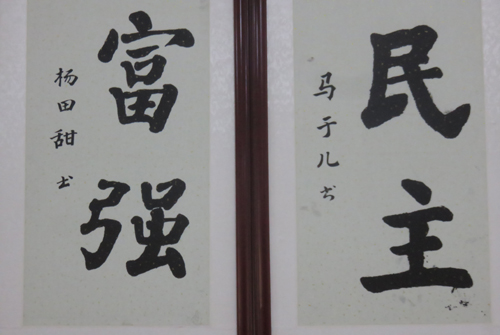 富强
杨田甜 书
民主
马于儿书